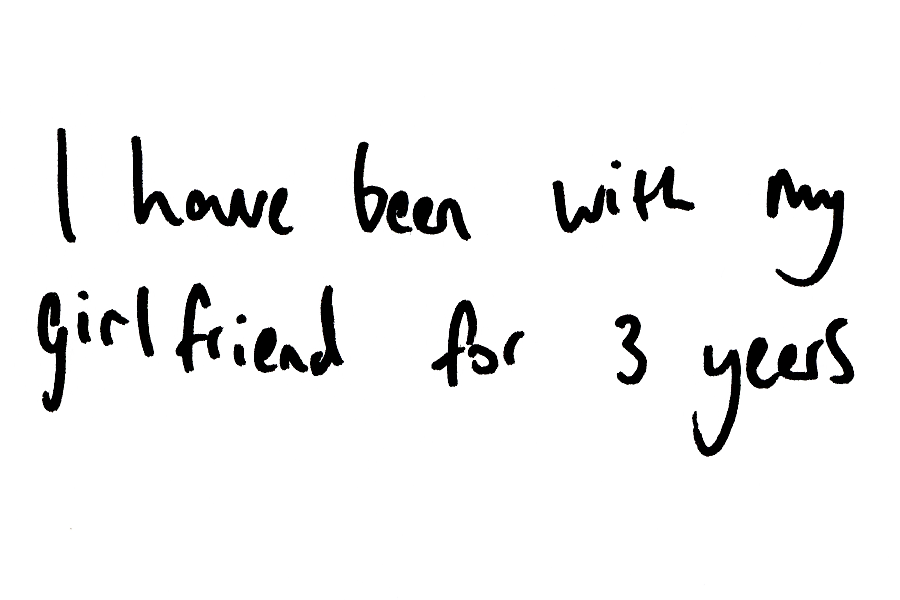 I have been with my
girlfriend for 3 years